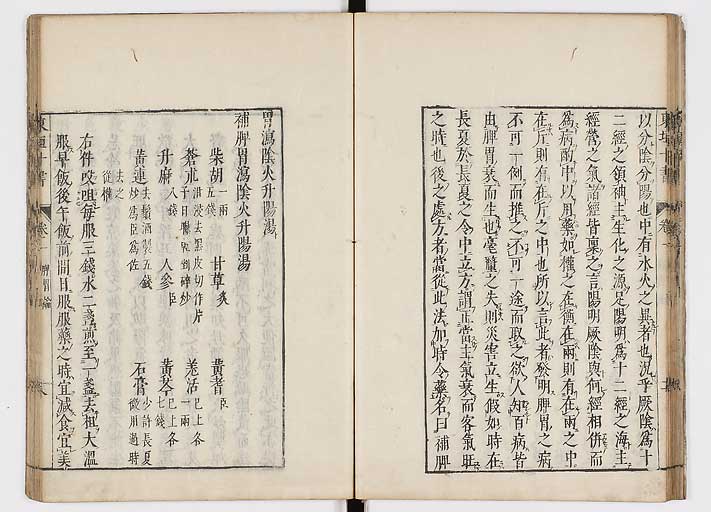 以分陰分陽也中有水火之異者也況乎厥陰爲十
二經之領袖主生化之源足陽明爲十二經之海主
經營之氣諸經皆稟之言陽明厥陰與何經相併而
爲病酌中以用藥如權之在衡在兩則有在兩之中
在斤則有在斤之中也所以言此者發明脾胃之病
不可一例而推之不可一途而取之欲人知百病皆
由脾胃衰而生也毫釐之失則災害立生假如時在
長夏於長夏之令中立方謂正當主氣衰而客氣旺
之時也後之處方者當從此法加時令藥名曰補脾
胃瀉陰火升陽湯
補脾胃瀉陰火升陽湯
柴胡一兩五錢 甘草炙 黃耆臣
蒼朮泔浸去黑皮切作片子日曬乾剉碎炒 羌活已上各一兩
升麻八錢 人參臣 黃芩已上各七錢
黃連去鬚酒製五錢炒爲臣爲佐 石膏少許長夏微用過時
去之從權
右件㕮咀每服三錢水二盞煎至一盞去柤大溫
服早飯後午飯前間日服服藥之時宜減食宜美
東垣十書 卷之